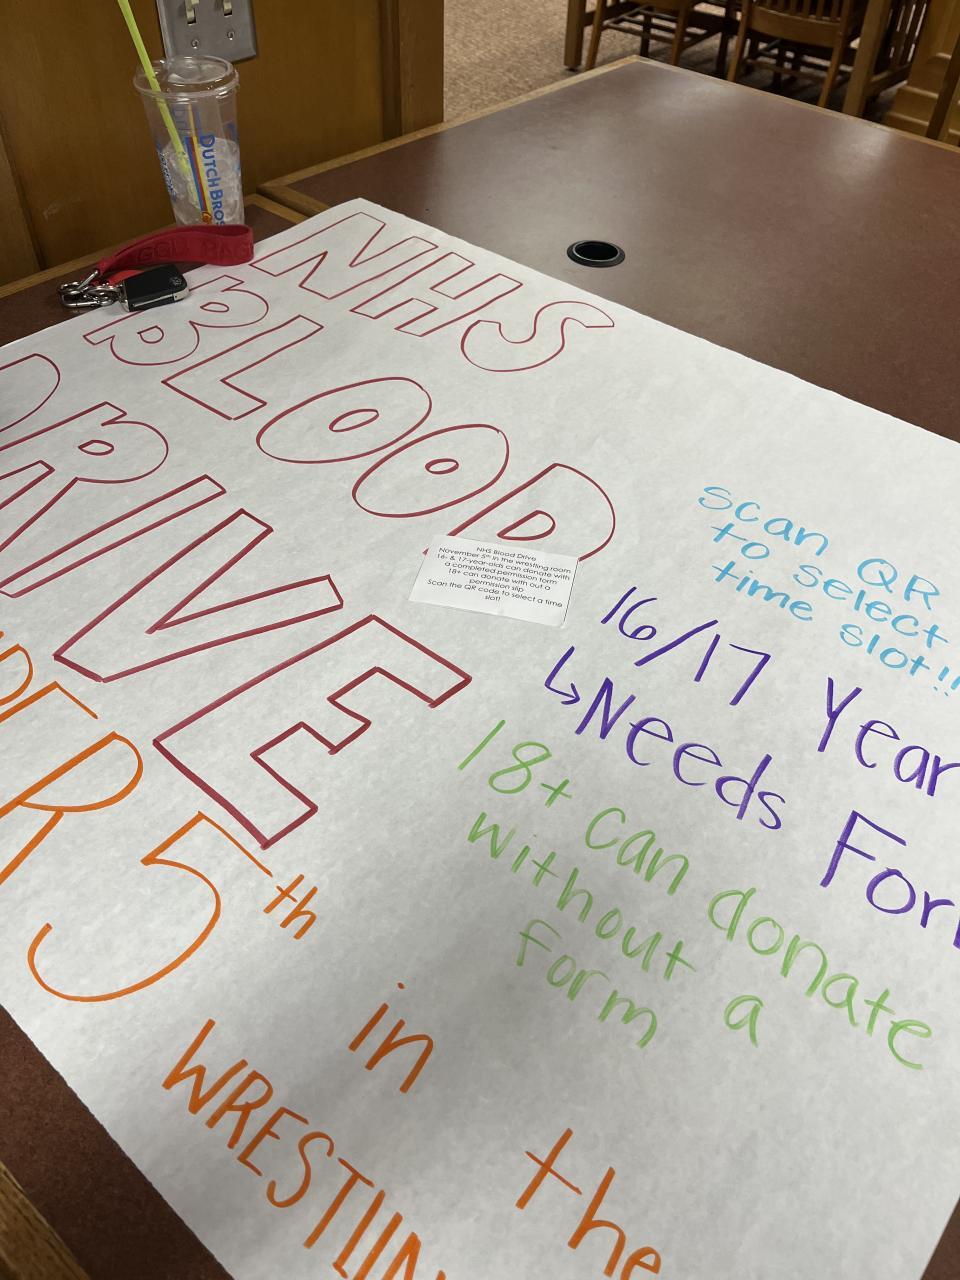 DUTCH BROS
NHS
BLOOD
DRIVE
NHS Blood Drive
November 5th in the wrestling room
16- & 17-year-olds can donate with
a completed permission form
18+ can donate with out a
permission slip
Scan the QR code to select a time
slot!
scan QR
to select
time slot!!
16/17 Year
↳Needs Form
18+ can donate
without a
form
BER 5th
in the
WRESTLIN